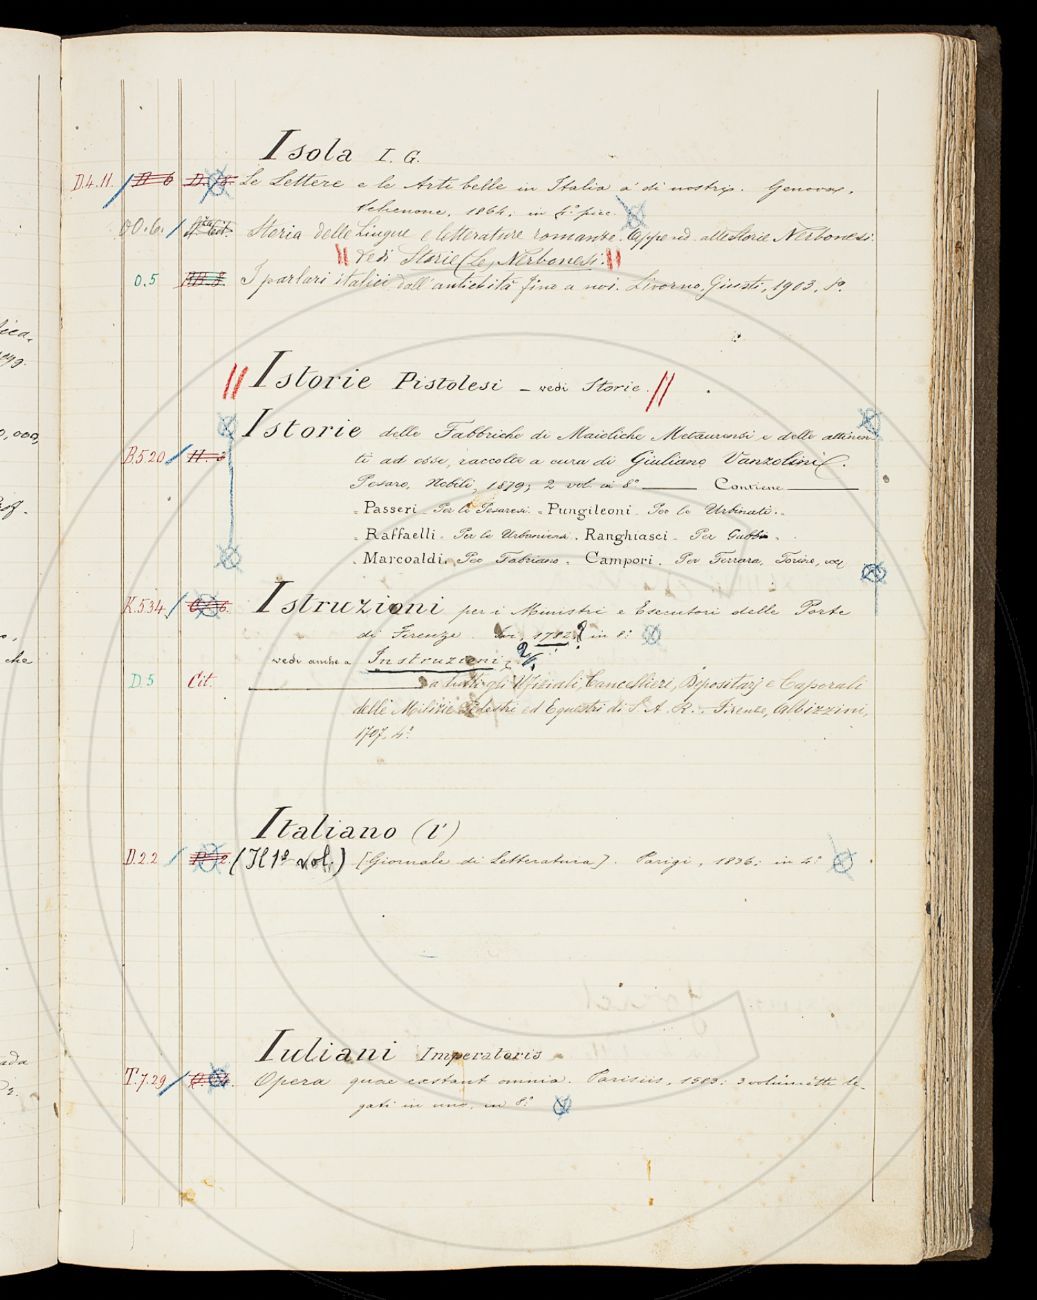 Isola I. G.
D.4.11. Le Lettere e le Arti belle in Italia a' dì nostri. Genova,
1864; in 8.° picc.
O.6. Storia delle Lingue e letterature romanze. Append. alle Storie Nerbonesi.
Vedi Storie (le) Nerbonesi.
O.5 I parlari italici dall'antichità fino a noi. Livorno, Giusti, 1903, 8°.
Istorie Pistolesi - vedi Storie.
Istorie delle Fabbriche di Maioliche Metaurensi e delle attinen-
B.5.20 ti ad esse, raccolte a cura di Giuliano Vanzolini.
Pesaro, Nobili, 1879; 2 vol. in 8° Contiene
Passeri - Per le Pesaresi. - Pungileoni - Per le Urbinati. -
- Raffaelli - Per le Urbaniesi. Ranghiasci - Per Gubbio.
- Marcoaldi. Per Fabriano. Campori. Per Ferrara, Torino,
K.5.34 Istruzioni per i Ministri e Esecutori delle Porte
di Firenze. Ivi, 1782? in 8°
vedi anche a Instruzioni
D.5 Cit. a tutti gli Ufiziali, Cancellieri, Depositarj e Caporali
delle Milizie Pedestri ed Equestri di S. A. R. Firenze, Albizzini,
1707, 4°
Italiano (l')
D.2.2 (Il 1° vol.) [Giornale di Letteratura]. Parigi, 1836; in 4°
Iuliani Imperatoris
T.7.29 Opera quae extant omnia. Parisiis, 1583; 3 volumetti le-
gati in uno, in 8°